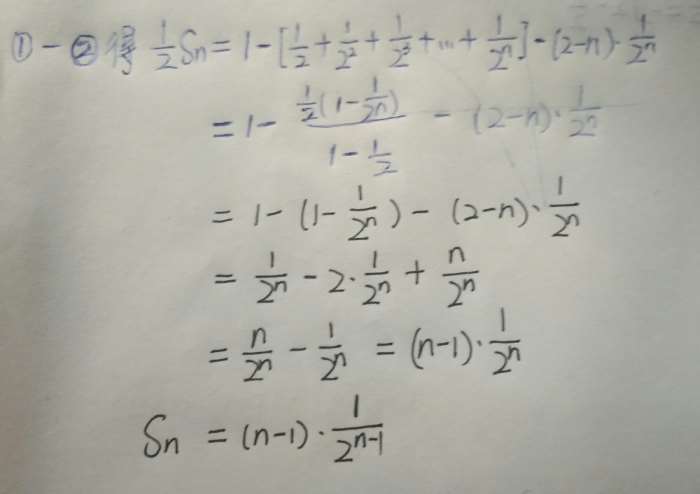 ①-②得 1/2 Sn = 1-[1/2+1/2²+1/2³+…+1/2ⁿ]-(2-n)·1/2ⁿ
= 1- (1/2(1-1/2ⁿ))/(1-1/2) - (2-n)·1/2ⁿ
= 1-(1-1/2ⁿ)-(2-n)·1/2ⁿ
= 1/2ⁿ-2·1/2ⁿ+n/2ⁿ
= n/2ⁿ-1/2ⁿ = (n-1)·1/2ⁿ
Sn = (n-1)·1/2ⁿ⁻¹